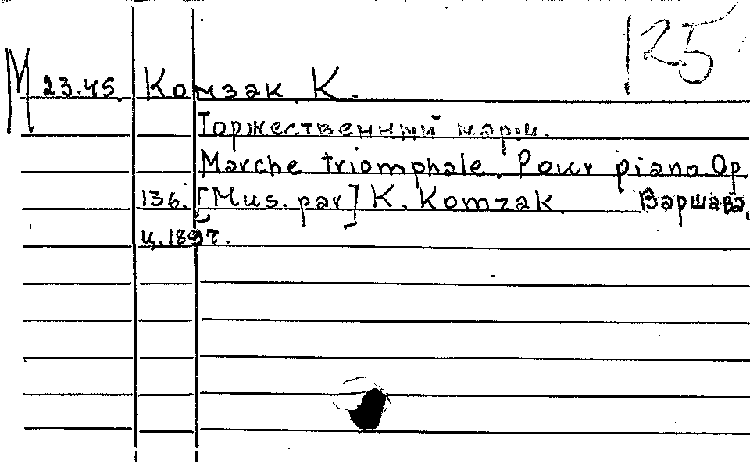 125
М 23.45. Комзак К.
Торжественный марш.
Marche triomphale. Pour piano Op.
136. [Mus. par] K. Komzak. Варшава,
ц. 1897.